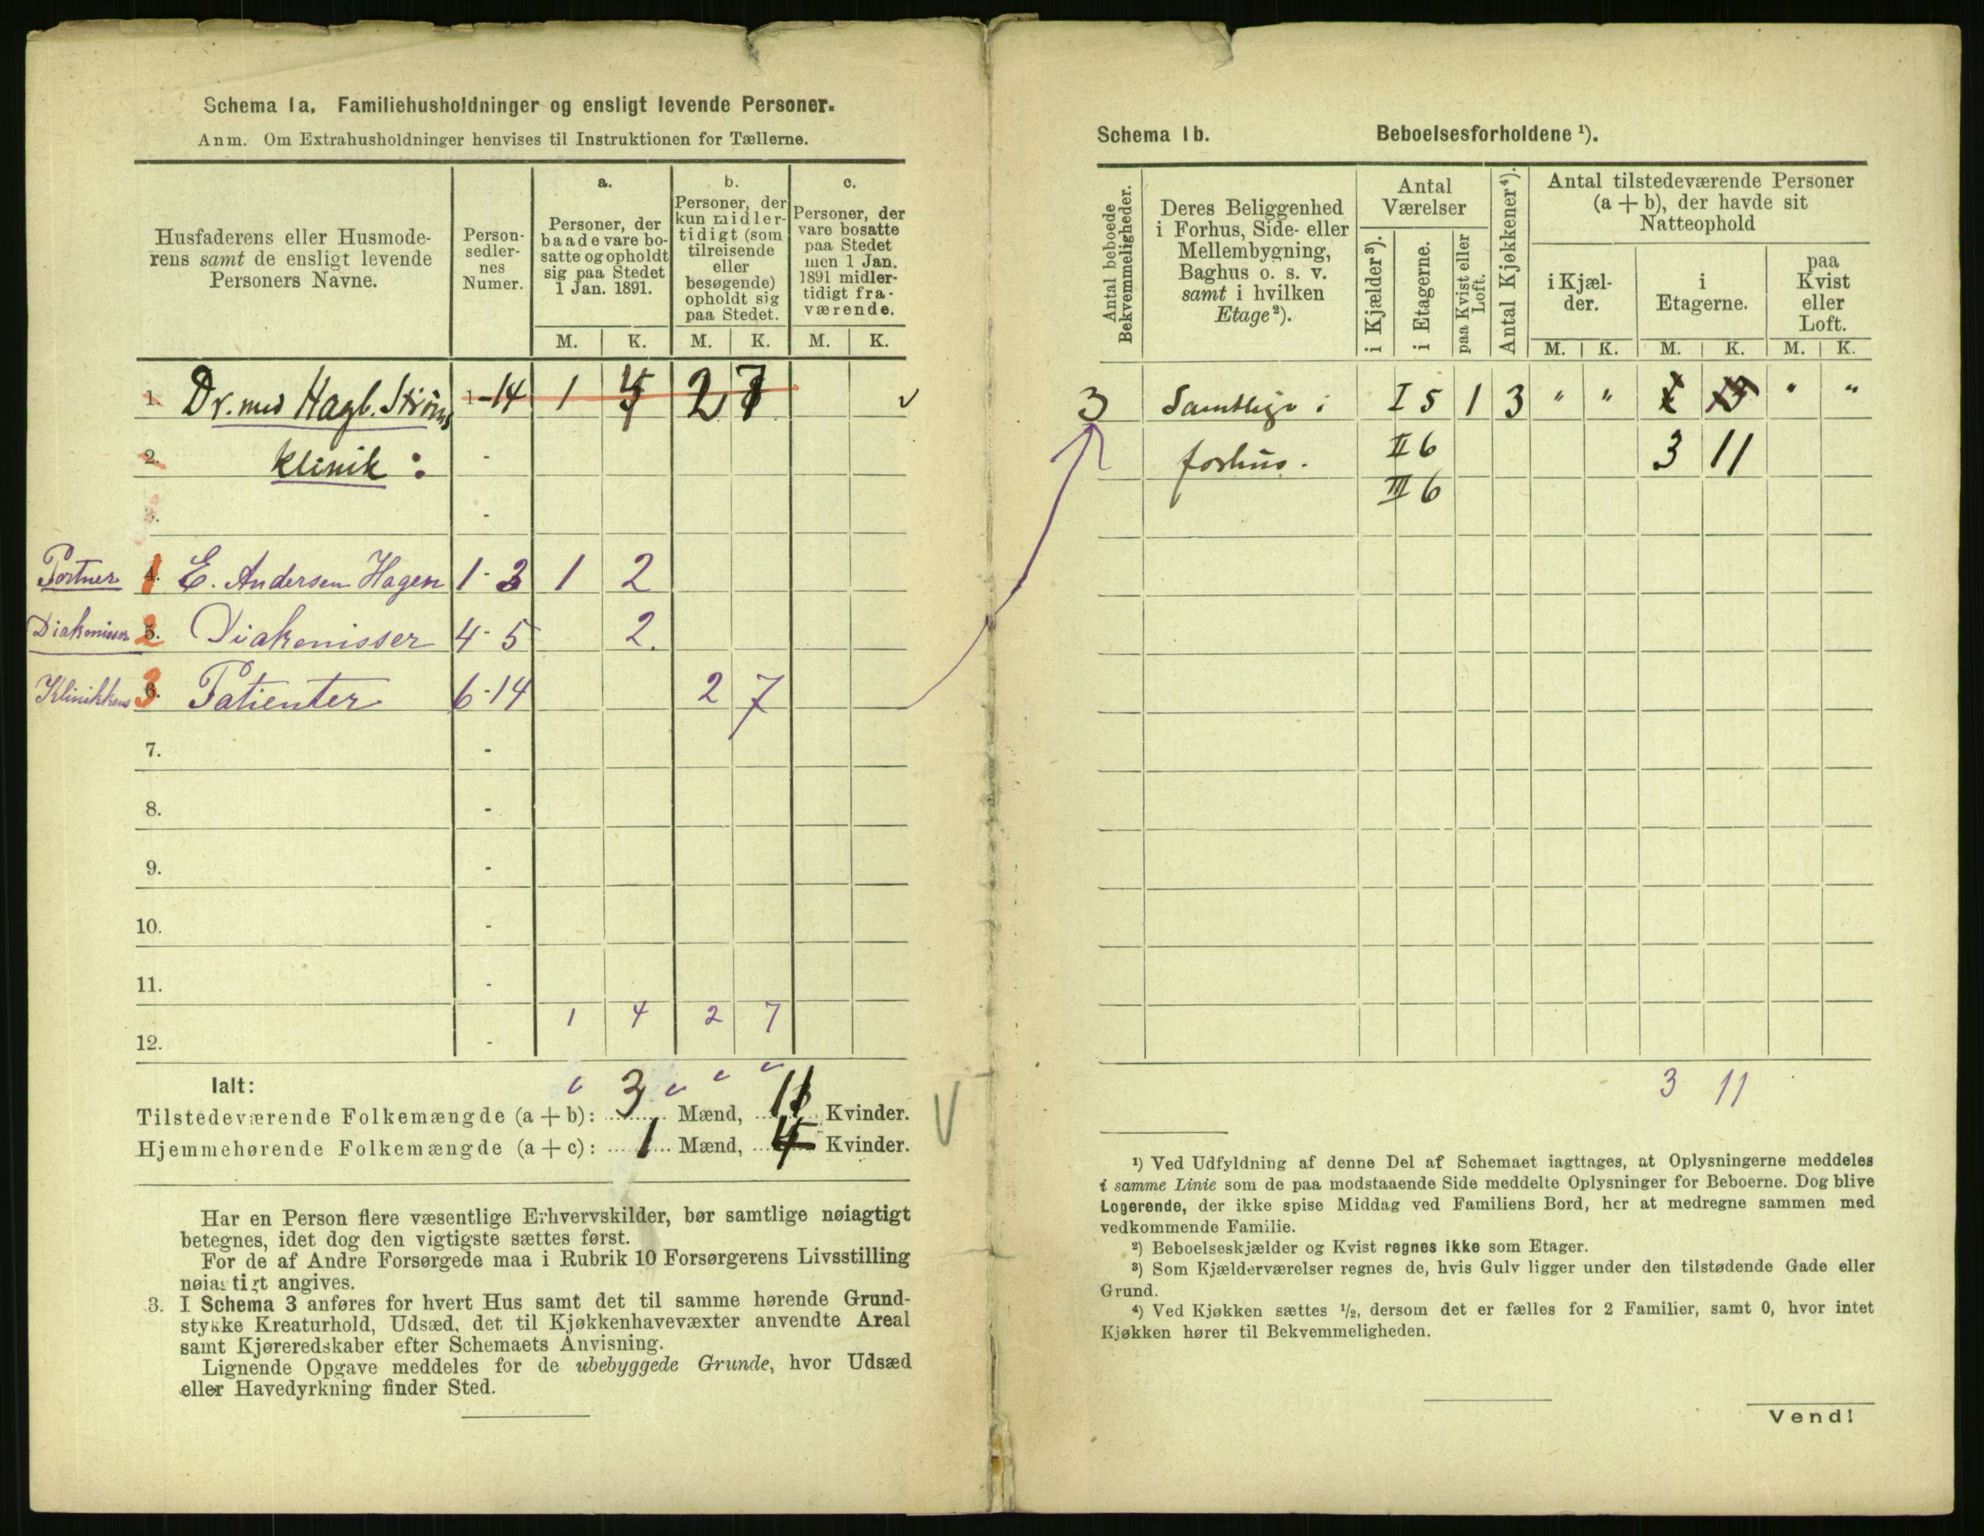 Schema 1a. Familiehusholdninger og ensligt levende Personer.
Anm. Om Extrahusholdninger henvises til Instruktionen for Tællerne.
Husfaderens eller Husmoderens samt de ensligt levende Personers Navne.
Personsedlernes Numer.
a.
Personer, der baade vare bosatte og opholdt sig paa Stedet 1 Jan. 1891.
b.
Personer, der kun midlertidigt (som tilreisende eller besøgende) opholdt sig paa Stedet.
c.
Personer, der vare bosatte paa Stedet men 1 Jan. 1891 midlertidigt fraværende.
M. K. M. K. M. K.
1. Dr. med Hagb. Strøms 1-14 1 4 2 7
2. klinik : -
3. -
Portner 1 4. E. Andersen Hagen 1-3 1 2
Diakonisser 2 5. Diakonisser 4-5 2.
Klinikkens 3 6. Patienter 6-14 2 7
7. -
8. -
9. -
10. -
11. -
1 4 2 7
12. -
Ialt:
Tilstedeværende Folkemængde (a+b): 3 Mænd, 11 Kvinder.
Hjemmehørende Folkemængde (a+c): 1 Mænd, 4 Kvinder.
Har en Person flere væsentlige Erhvervskilder, bør samtlige nøiagtigt
betegnes, idet dog den vigtigste sættes først.
For de af Andre Forsørgede maa i Rubrik 10 Forsørgerens Livsstilling
nøiagtigt angives.
3. I Schema 3 anføres for hvert Hus samt det til samme hørende Grund-
stykke Kreaturhold, Udsæd, det til Kjøkkenhavevæxter anvendte Areal
samt Kjøreredskaber efter Schemaets Anvisning.
Lignende Opgave meddeles for de ubebyggede Grunde, hvor Udsæd
eller Havedyrkning finder Sted.
Schema 1b. Beboelsesforholdene ¹).
Antal beboede Bekvemmeligheder.
Deres Beliggenhed i Forhus, Side- eller Mellembygning, Baghus o. s. v. samt i hvilken Etage²).
Antal Værelser
i Kjælder³).
i Etagerne.
paa Kvist eller Loft.
Antal Kjøkkener⁴).
Antal tilstedeværende Personer (a+b), der havde sit Natteophold
i Kjælder.
i Etagerne.
paa Kvist eller Loft.
M. K. M. K. M. K.
3 Samtlige i I 5 1 3 " " " "
forhus. II 6 3 11
III 6
3 11
¹) Ved Udfyldning af denne Del af Schemaet iagttages, at Oplysningerne meddeles
i samme Linie som de paa modstaaende Side meddelte Oplysninger for Beboerne. Dog blive
Logerende, der ikke spise Middag ved Familiens Bord, her at medregne sammen med
vedkommende Familie.
²) Beboelseskjælder og Kvist regnes ikke som Etager.
³) Som Kjælderværelser regnes de, hvis Gulv ligger under den tilstødende Gade eller
Grund.
⁴) Ved Kjøkken sættes ½, dersom det er fælles for 2 Familier, samt 0, hvor intet
Kjøkken hører til Bekvemmeligheden.
Vend!